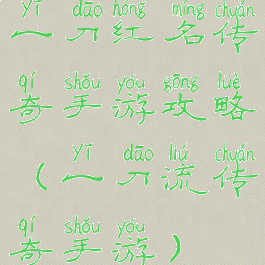 yī dāo hóng míng chuán
一刀红名传
qí shǒu yóu gōng lüè
奇手游攻略
yī dāo liú chuán
(一刀流传
qí shǒu yóu
奇手游)